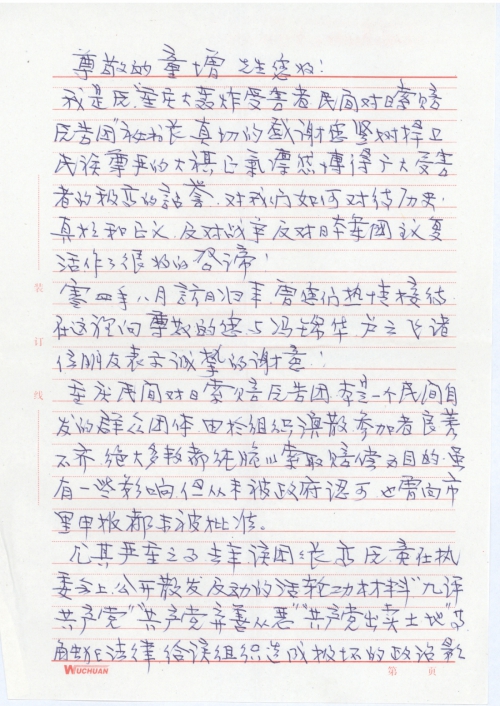 尊敬的童增先生您好!
我是原"重庆大轰炸受害者民间对日索赔
原告团"秘书长真切的感谢您坚树捍卫
民族尊严的大旗正气凛然博得广大受害
者的称赞,对我们如何对待历史,
真相和正义,反对战争反对日本军国主义复
活作了很好的诠谛!
零四年八月访日归来,曾您们热情接待
在这里向尊敬的您与冯锦华、卢云飞诸
位朋友表示诚挚的谢意!
重庆民间对日索赔原告团,本是一个民间自
发的群众团体,由于组织涣散参加者良莠
不齐,绝大多数都纯脆以索取赔偿为目的,虽
有一些影响,但从未被政府认可,也曾向市
里申报都未被批准。
尤其严重之了去年,该团团长原竟在执
委会上,公开散发反动的法轮功材料"九评
共产党""共产党弃善从恶""共产党出卖土地"等
触犯法律给该组织造成极坏的政治影
装
订
线
WUCHUAN
第 页